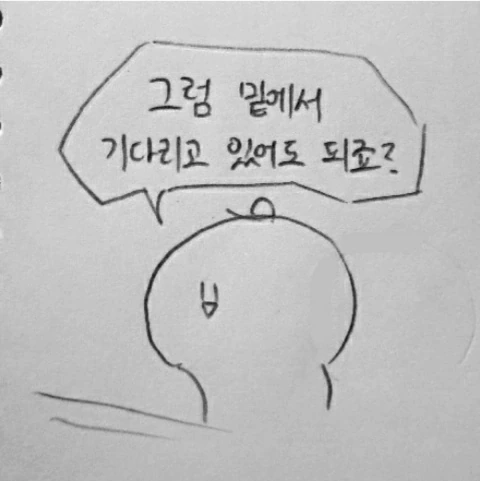 그럼 밑에서
기다리고 있어도 되죠?